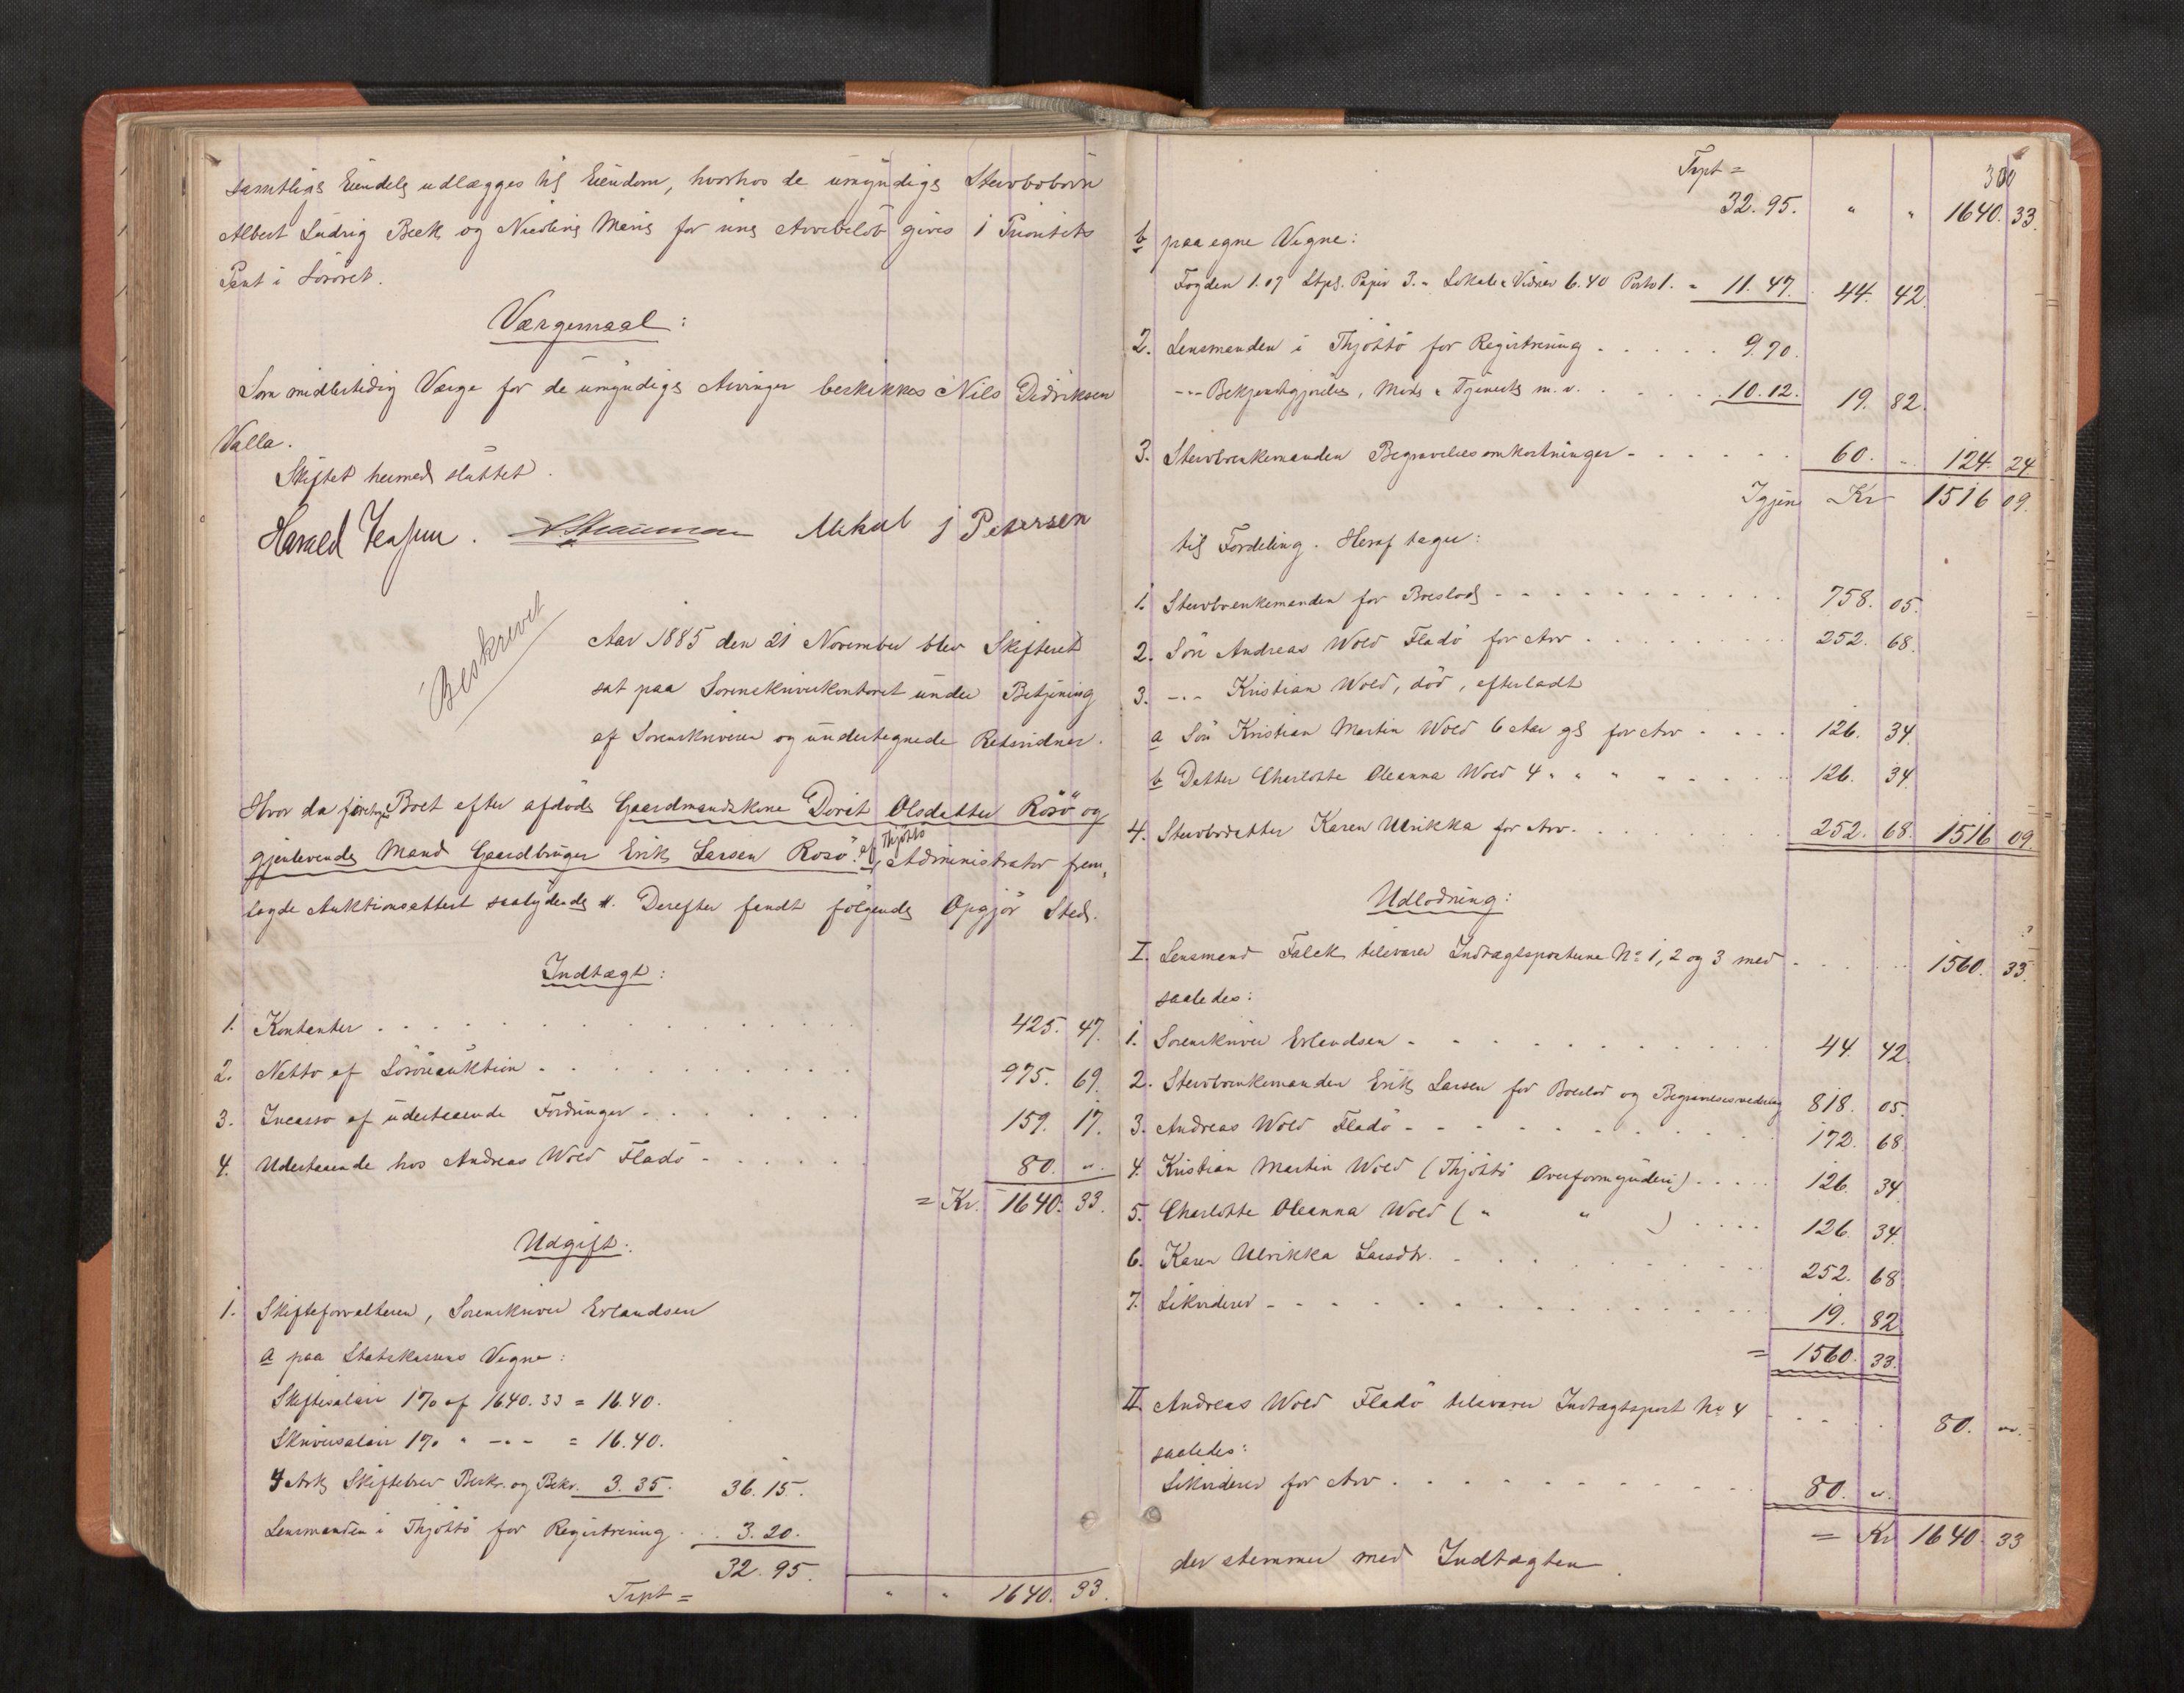 samtlige Eiendele udlægges til Eiendom, hvorhos de umyndige Stervbobørn
Albert Ludvig Beck og Nicoline Marie for sine Arvebeløb gives 1 Prioritets
Pant i Løsøret.
Værgemaal:
Som midlertidig Værge for de umyndige Arvinger beskikkes Nils Didriksen
Valla.
Skiftet hermed sluttet.
Harald Jensen. Mikal j Petersen
Beskrevet
Aar 1885 den 21 November blev Skifteret
sat paa Sorenskriverkontoret under Betjening
af Sorenskriveren og undertegnede Retsvidner.
Hvor da foretoges Boet efter afdøde Gaardmandskone Dorit Olsdatter Rosö og
gjenlevende Mand Gaardbruger Erik Larsen Rosö. af Thjöttö Administrator frem-
lagde Auktionsattest saalydende //. Derefter fandt følgende Opgjør Sted.
Indtægt:
1. Kontanter . . . 425. 47.
2. Netto af Løsøreauktion . . . 975. 69.
3. Incasso af udestaaende Fordringer . . . 159. 17.
4. Udestaaende hos Andreas Wold Fladö . . . 80. "
= Kr. 1640. 33.
Udgift:
1. Skifteforvalteren, Sorenskriver Erlandsen
a paa Statskassens Vegne:
Skiftesalair 1% af 1640.33 = 16.40.
Skriversalair 1% " -"- = 16.40.
4 Ark Skiftebrev Beskr. og Bekr. 3.35. 36.15.
Lensmanden i Thjöttö for Registrering . . 3.20.
32.95.
Trpt = " " 1640. 33.
300
Trpt =
32.95. " " 1640. 33.
b paa egne Vegne:
Fogden 1.07 Stpl. Papir 3." Lokale & Vidner 6.40 Porto 1." 11.47. 44. 42.
2. Lensmanden i Thjöttö for Registrering . . . 9.70.
-"- Bekjendtgjørelse, Møde & Tjeneste m. v. . . . 10.12. 19. 82.
3. Stervboenkemanden Begravelsesomkostninger . . . 60. " 124. 24.
Igjen Kr 1516 09.
til Fordeling. Heraf tager:
1. Stervboenkemanden for Boeslod . . . 758. 05.
2. Søn Andreas Wold Fladö for Arv . . . 252. 68.
3. -"- Kristian Wold, död, efterladt
a Søn Kristian Martin Wold 6 Aar gl for Arv . . . 126. 34.
b Datter Charlotte Oleanna Wold 4 " " " . . . 126. 34.
4. Stervbodatter Karen Ulrikka for Arv . . . 252. 68. 1516 09.
Udlodning:
I. Lensmand Falck tilsvarer Indtægtsposterne No 1, 2 og 3 med . . . 1560. 33.
saaledes:
1. Sorenskriver Erlandsen . . . 44. 42.
2. Stervboenkemanden Erik Larsen for Boeslod og Begravelsesvederlag 818. 05.
3. Andreas Wold Fladö . . . 172. 68
4. Kristian Martin Wold (Thjöttö Overformynderi) . . . 126. 34.
5. Charlotte Oleanna Wold ( " " ) . . . 126. 34.
6. Karen Ulrikka Larsdtr. . . . 252. 68
7. Likviderer . . . 19. 82
= 1560. 33.
II. Andreas Wold Fladö tilsvarer Indtægtspost No 4 . . . 80. "
saaledes:
Likviderer for Arv . . . 80. "
= Kr 1640. 33
der stemmer med Indtægten.